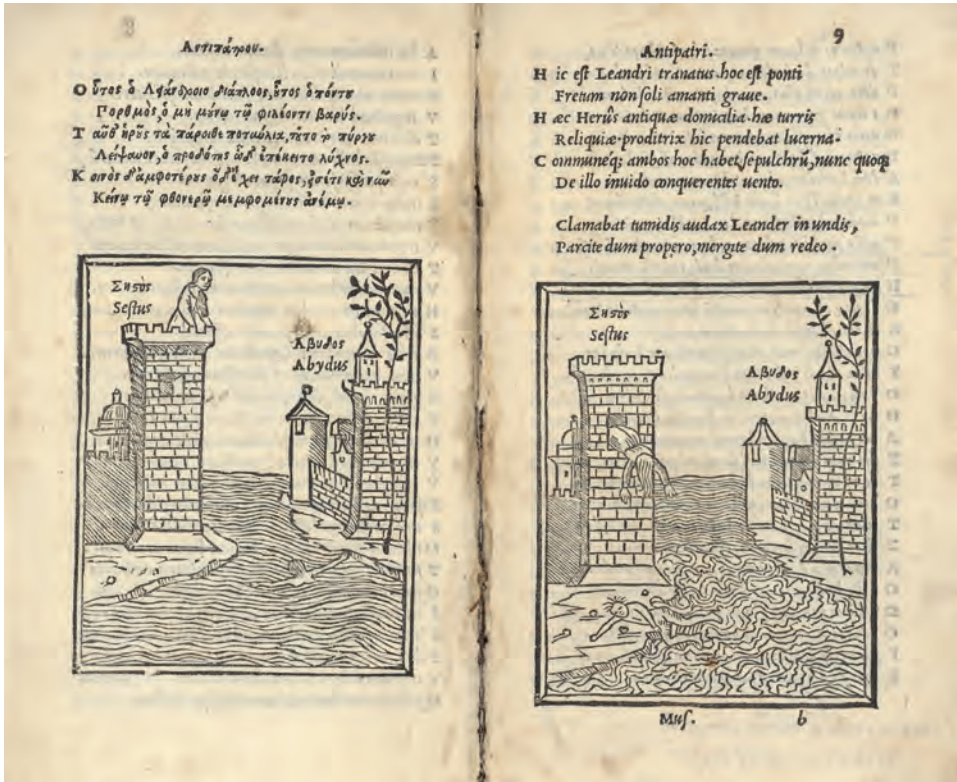 Αντιπάτρου.
Οὗτος ὁ Λεάνδροιο διάπλοος, οὗτος ὁ πόντου
Πορθμὸς, ὁ μὴ μούνῳ τῷ φιλέοντι βαρύς.
Ταῦθ' ἡροῦς τὰ πάροιθε
Λείψανον, ὁ προδότης ὧδ' ἐπέκειτο λύχνος.
Κοινὸς δ' ἀμφοτέρους ὅδ' ἔχει τάφος, εἰσέτι καὶ νῦν
Κείνῳ τῷ φθονερῷ μεμφομένους ἀνέμῳ.
Σηστὸς
Sestus
Αβυδος
Abydus
9
Antipatri.
Hic est Leandri tranatus. hoc est ponti
Fretum non soli amanti graue.
Hæc Herûs antiquæ domicilia. hæ turris
Reliquiæ. proditrix hic pendebat lucerna.
Communeq; ambos hoc habet sepulchrũ, nunc quoq;
De illo inuido conquerentes uento.
Clamabat tumidis audax Leander in undis,
Parcite dum propero, mergite dum redeo.
Σηστὸς
Sestus
Αβυδος
Abydus
Mus. b